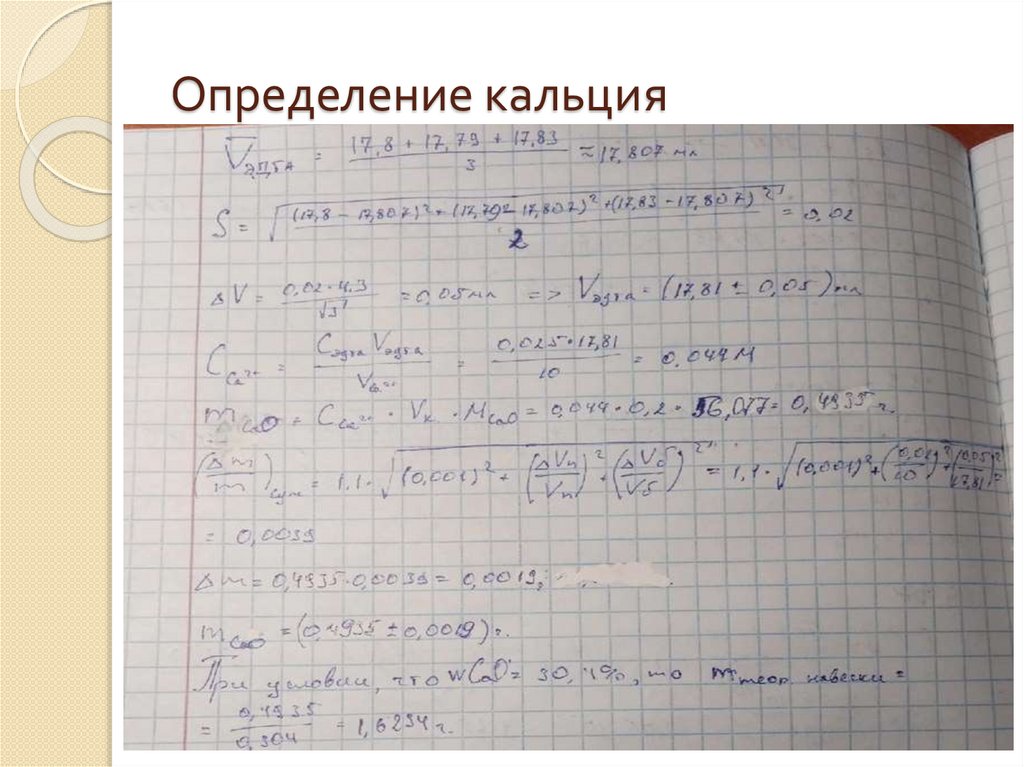 Определение кальция
V̅ЭДТА = (17,8 + 17,79 + 17,83)/3 ≈ 17,807 мл
S = √(((17,8 - 17,807)² + (17,79 - 17,807)² + (17,83 - 17,807)²)/2) = 0,02
ΔV = (0,02 · 4,3)/√3 = 0,05 мл => Vэдта = (17,81 ± 0,05) мл
C Ca²⁺ = (Cэдта Vэдта)/V Ca²⁺ = (0,025 · 17,81)/10 = 0,044 М
m CaO = C Ca²⁺ · Vк · M CaO = 0,044 · 0,2 · 56,077 = 0,4935 г.
(Δm/m)сум = 1,1 · √((0,001)² + (ΔVп/Vп)² + (ΔVб/Vб)²) = 1,1 · √((0,001)² + (0,02/10)² + (0,05/17,81)²) =
= 0,0039
Δm = 0,4935 · 0,0039 = 0,0019;
m CaO = (0,4935 ± 0,0019) г.
При условии, что wCaO = 30,4%, то m теор. навески =
= 0,4935/0,304 = 1,6234 г.